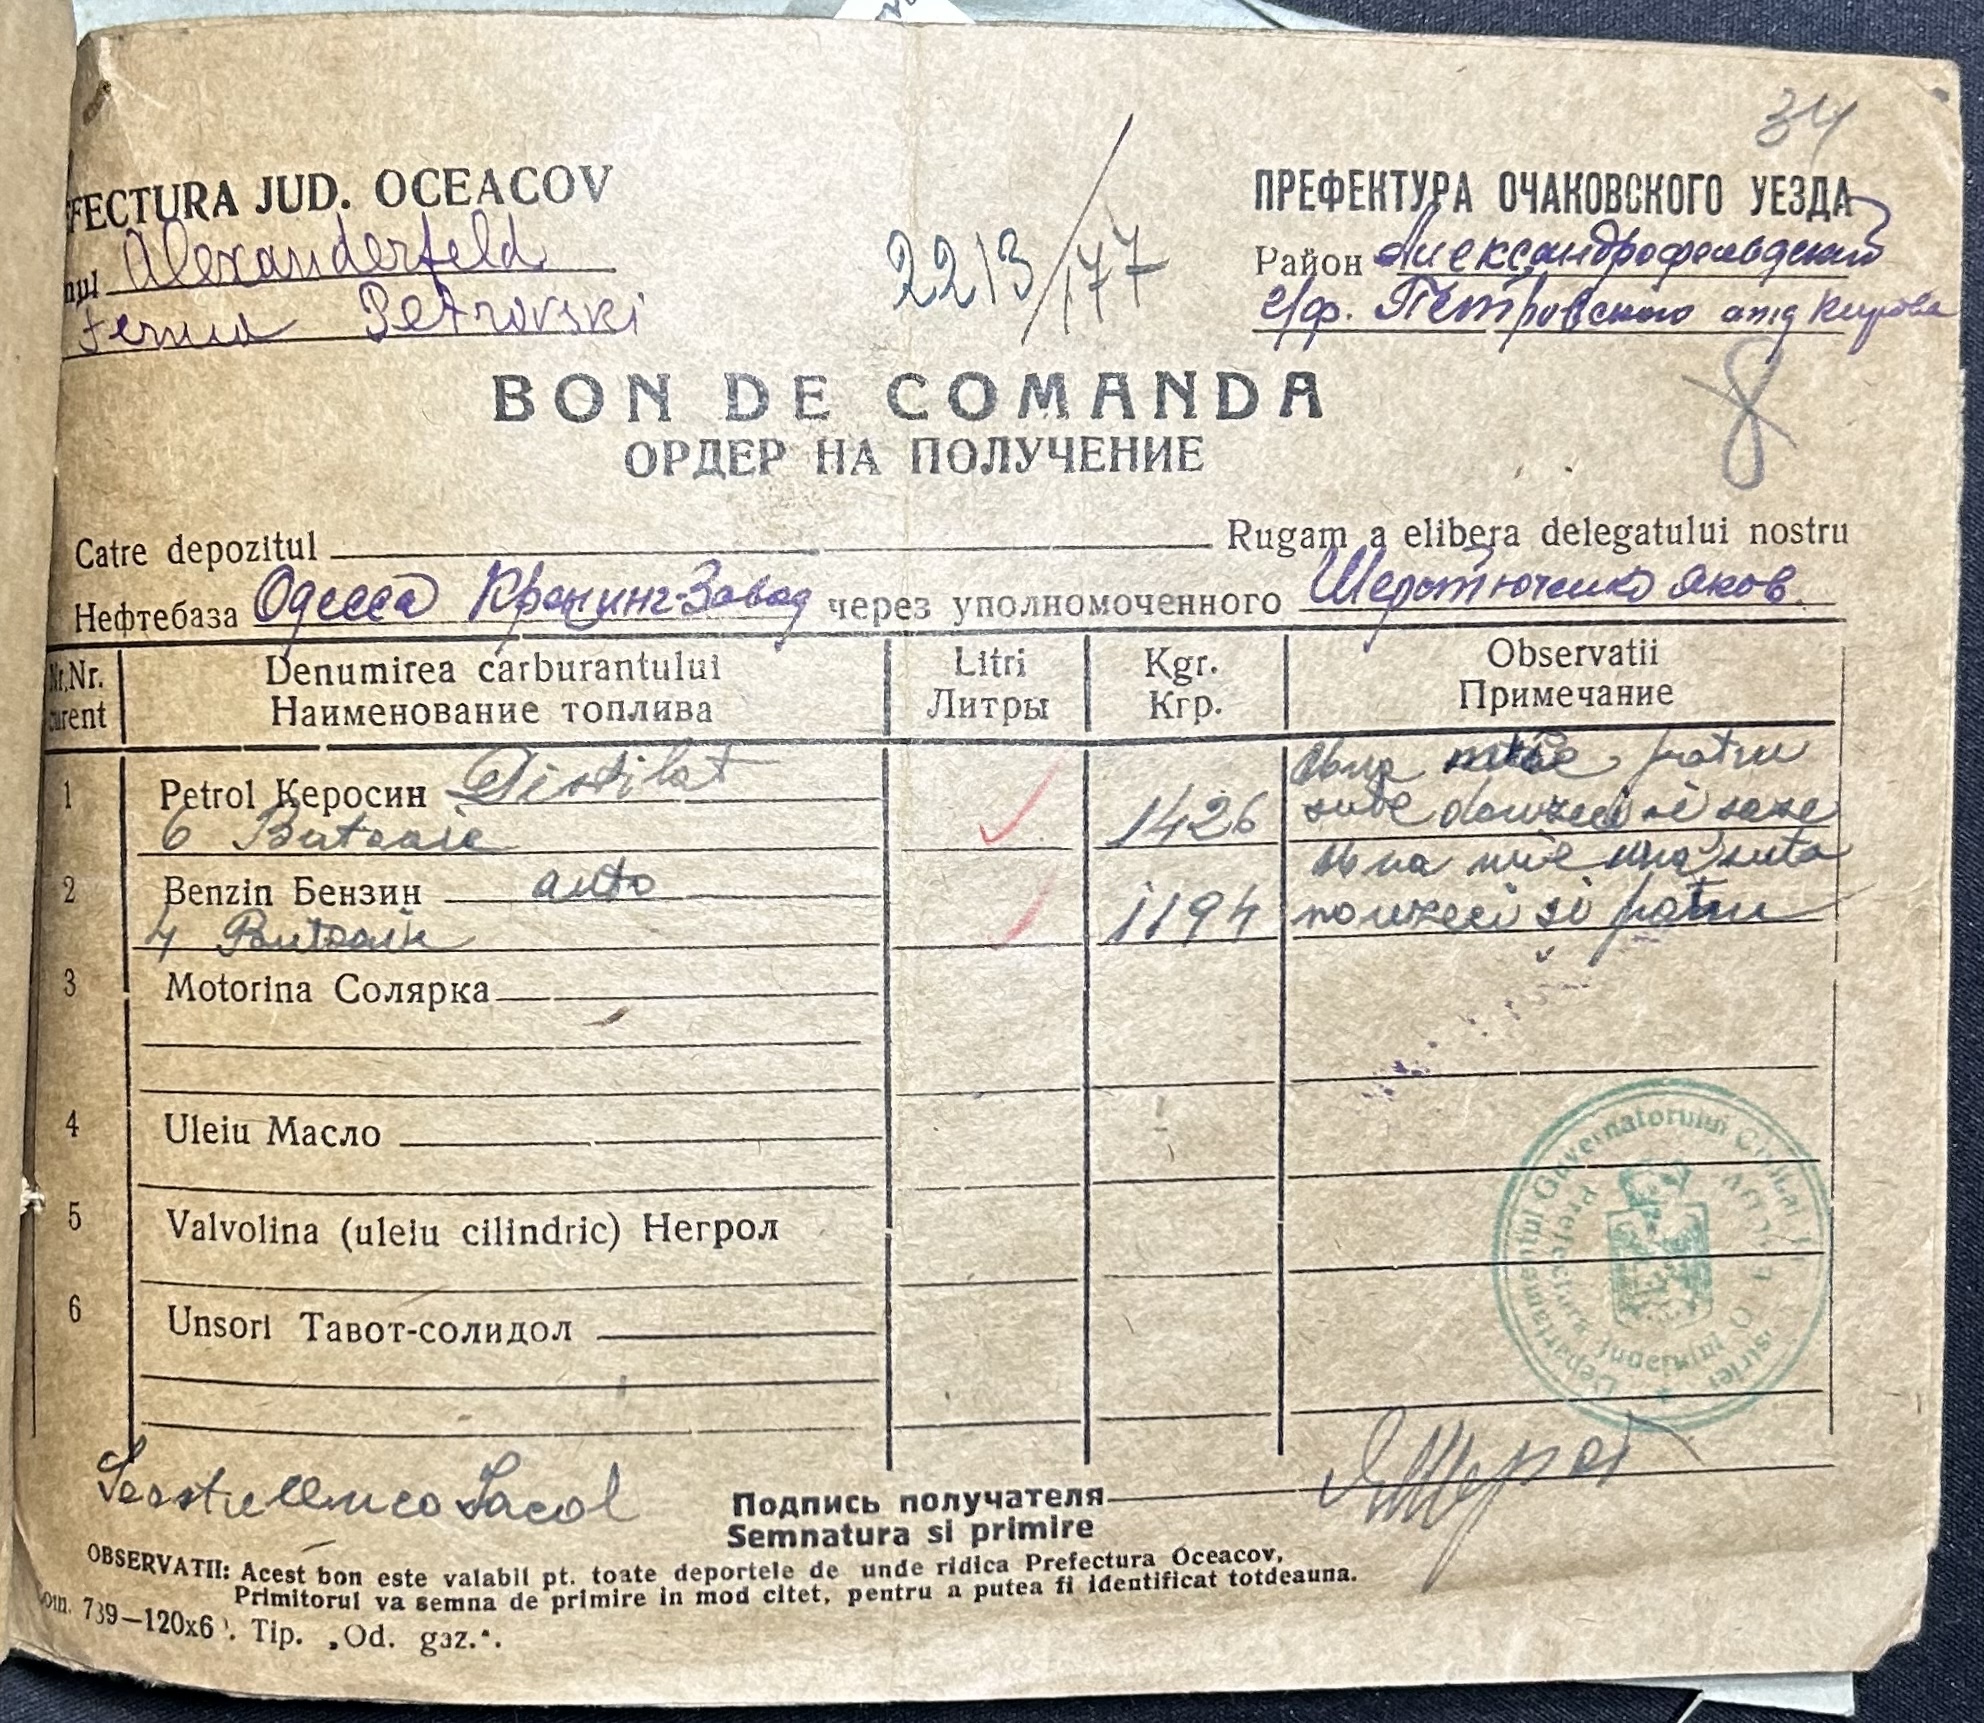 34
FECTURA JUD. OCEACOV
ПРЕФЕКТУРА ОЧАКОВСКОГО УЕЗДА
nul Alexanderfeld
2213/177
Район Александрофельдский
Ferma Petrovski
с/ф. Петровского
8
BON DE COMANDA
ОРДЕР НА ПОЛУЧЕНИЕ
Catre depozitul Rugam a elibera delegatului nostru
Нефтебаза Одесса Крекинг-Завод через уполномоченного Шерстюченко Яков.
Nr.Nr. Denumirea carburantului Litri Kgr. Observatii
curent Наименование топлива Литры Кгр. Примечание
1 Petrol Керосин Distilat 1426 Una mie patru
6 Butoaie sute douzeci si sase
2 Benzin Бензин auto 1194 Una mie una suta
4 Butoaie nouzeci si patru
3 Motorina Солярка
4 Uleiu Масло
5 Valvolina (uleiu cilindric) Негрол
6 Unsori Тавот-солидол
Departamentul Guvernatorului Civil al Transnistriei
Prefectura Judetului
Подпись получателя
Semnatura si primire
OBSERVATII: Acest bon este valabil pt. toate deportele de unde ridica Prefectura Oceacov,
Primitorul va semna de primire in mod citet, pentru a putea fi identificat totdeauna.
Com. 739—120x6 . Tip. „Od. gaz.“.